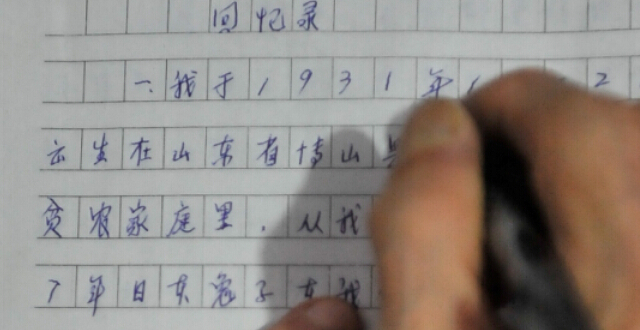 回忆录
一.我于1931年 2
云生在山东省博山县
贫农家庭里.从我
7年日东鬼子在我